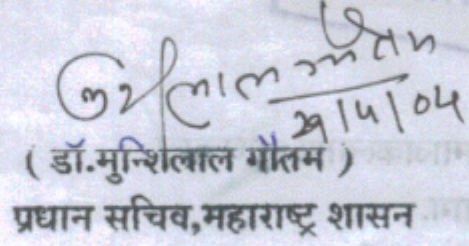 २१/५/०५
( डॉ.मुन्शिलाल गौतम )
प्रधान सचिव,महाराष्ट्र शासन